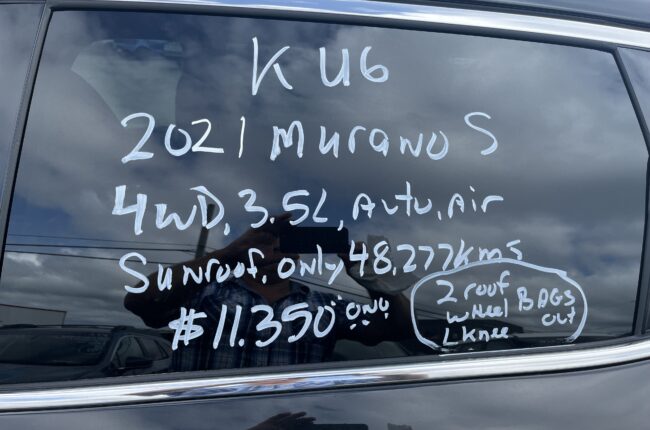 KU6
2021 Murano S
4WD, 3.5L, Auto, Air
Sunroof, only 48,277kms
$11,350 "ONO"
2 roof
wheel BAGS
LKnee out